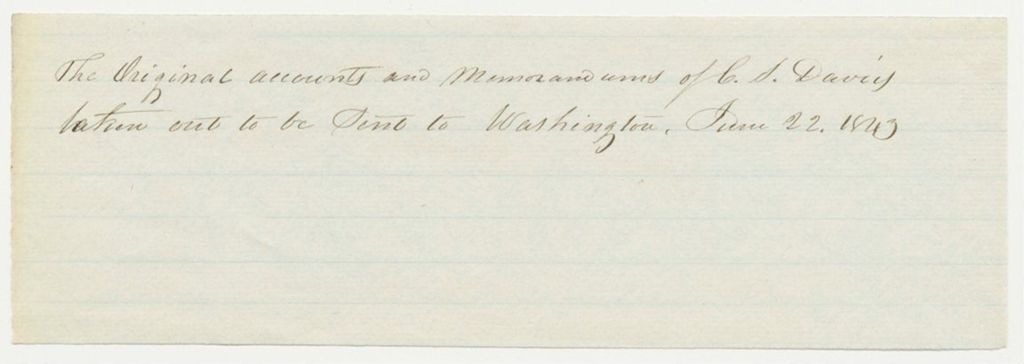 The Original accounts and Memorandums of C. S. Davies
taken out to be Sent to Washington. June 22. 1843